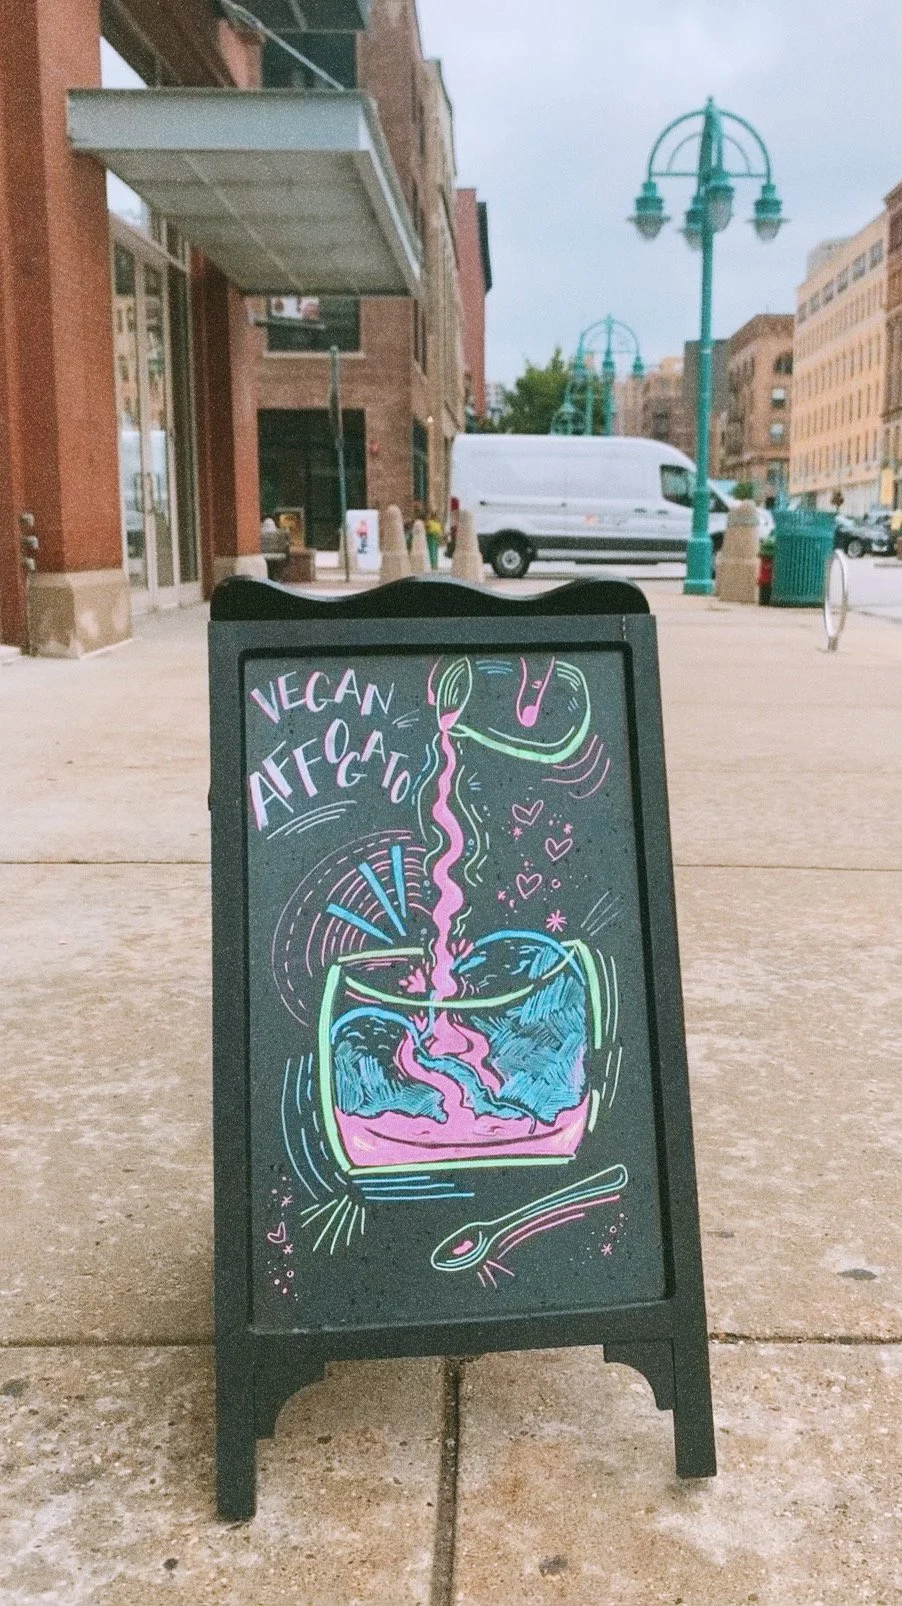 VEGAN
AFFOGATO